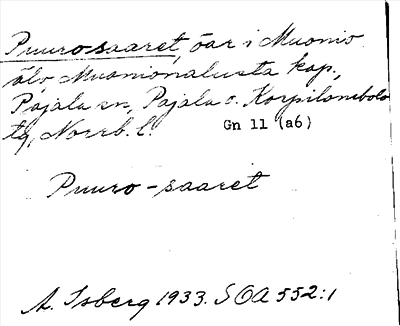 Puuro-saaret, öar i Muonio
älv, Muonionalusta kap.,
Pajala sn, Pajala o. Korpilombolo
tg, Norrb. l.
Gn 11 (a6)
Puuro-saaret
A. Isberg 1933. SOA 552:1